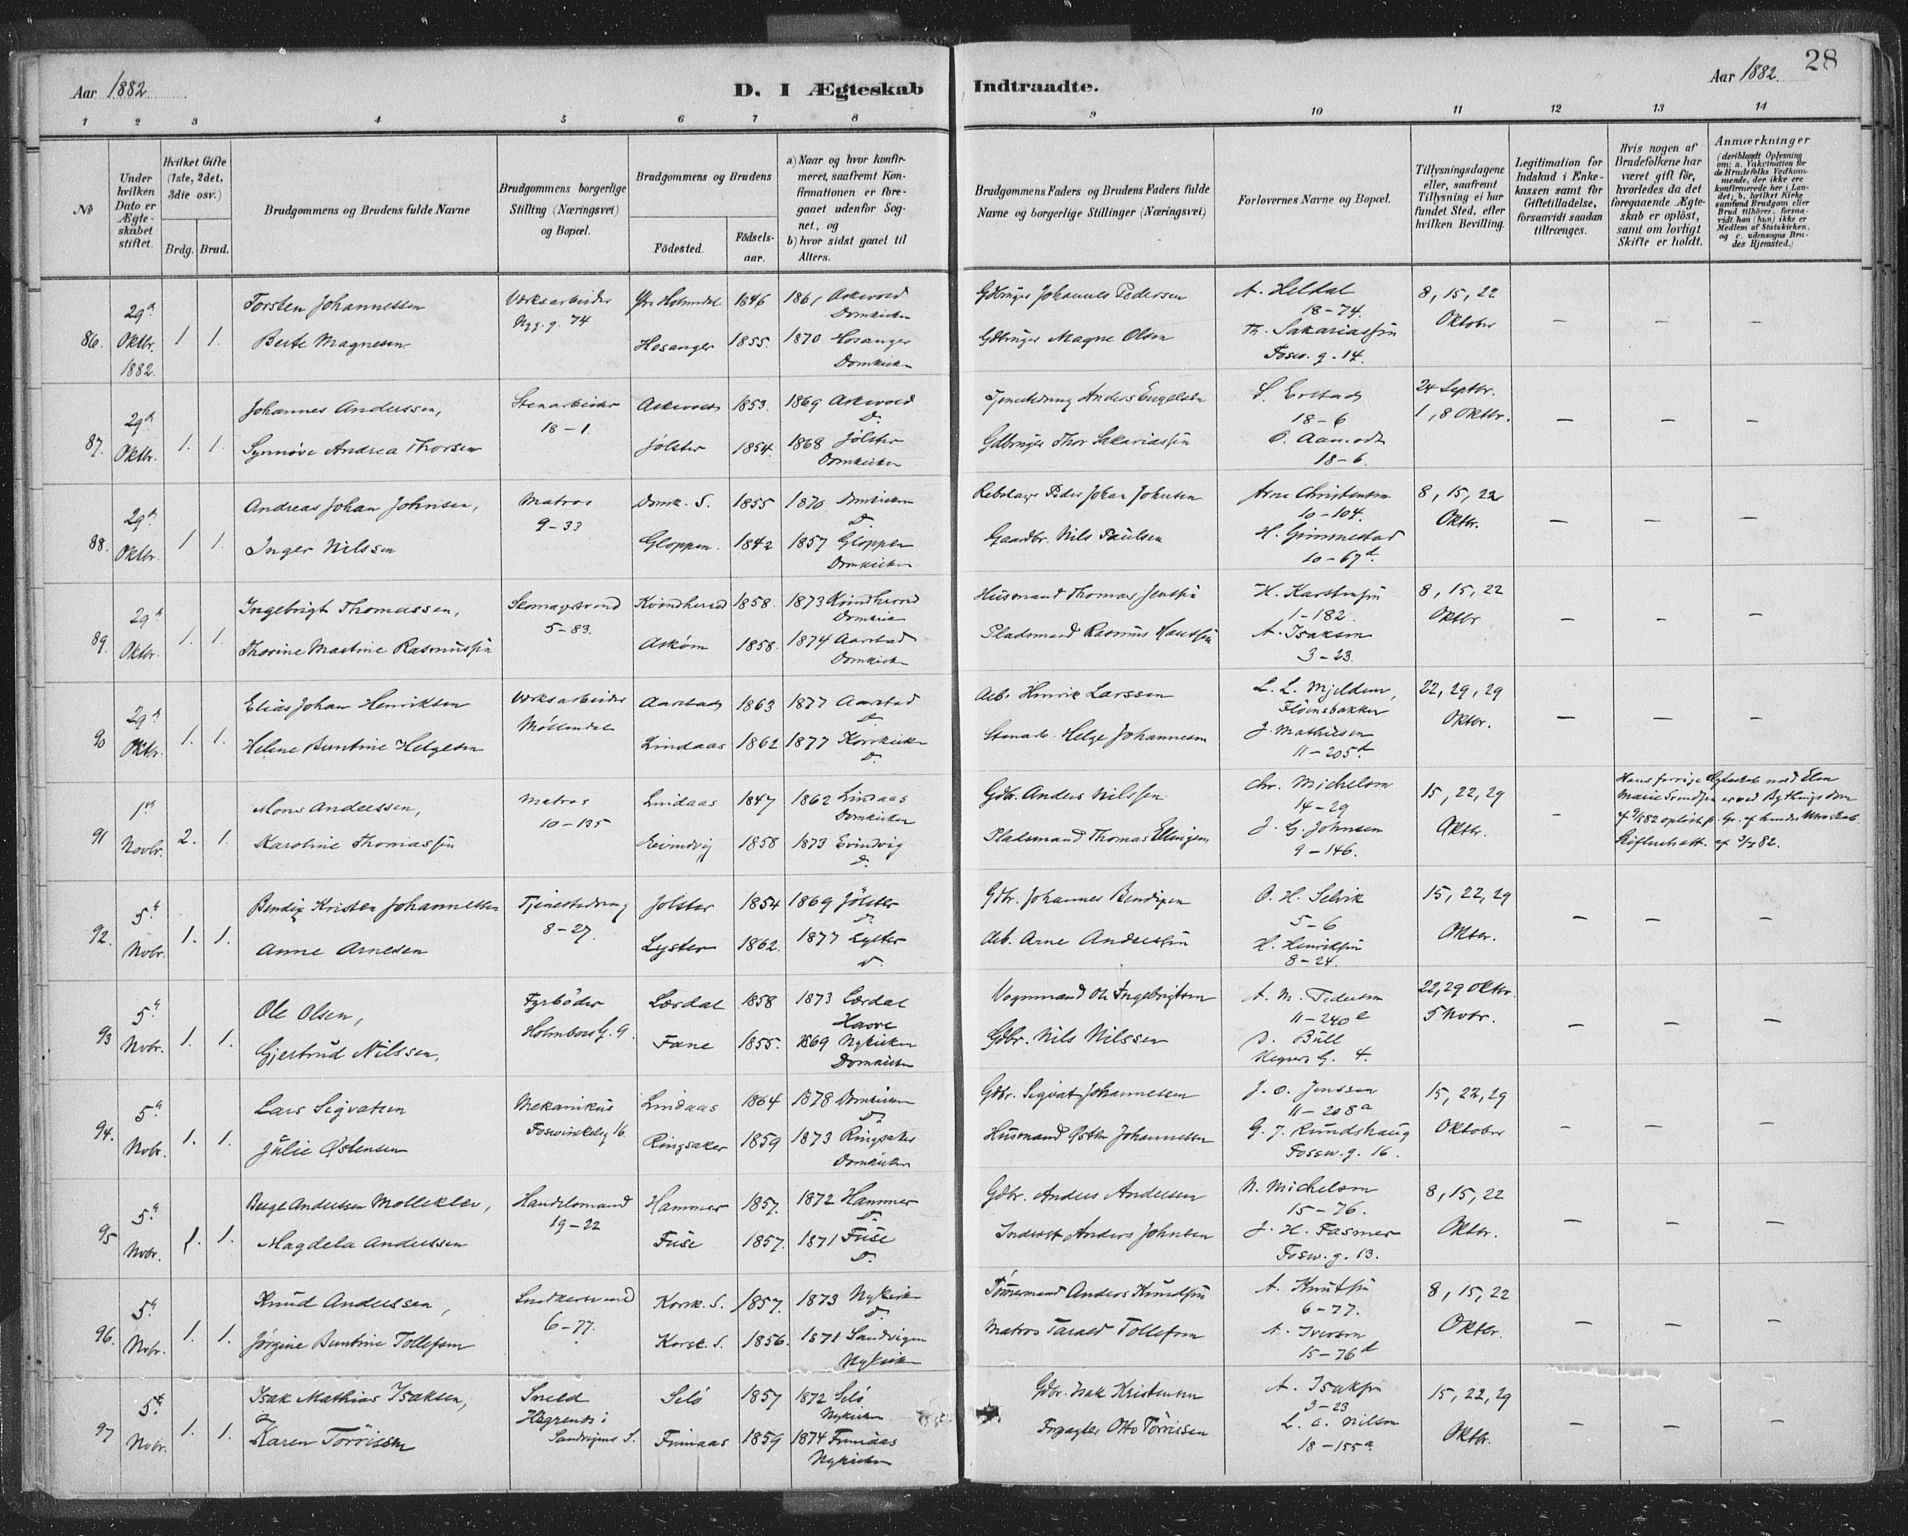 Aar 1882.
D. I Ægteskab
Indtraadte.
Aar 1882.
28
1 2 3 4 5 6 7 8
9 10 11 12 13 14
No
Under hvilken Dato er Ægteskabet stiftet.
Hvilket Gifte (1ste, 2det, 3die osv.)
Brdg. Brud.
Brudgommens og Brudens fulde Navne
Brudgommens borgerlige Stilling (Næringsvei) og Bopæl.
Brudgommens og Brudens
Födested. Födselsaar.
a) Naar og hvor konfirmeret, saafremt Konfirmationen er foregaaet udenfor Sognet, og
b) hvor sidst gaaet til Alters.
Brudgommens Faders og Brudens Faders fulde Navne og borgerlige Stillinger (Næringsvei)
Forlovernes Navne og Bopæl.
Tillysningsdagene eller, saafremt Tillysning ei har fundet Sted, efter hvilken Bevilling.
Legitimation for Indskud i Enkekassen samt for Giftetilladelse, forsaavidt saadan tiltrænges.
Hvis nogen af Brudefolkene har været gift för, hvorledes da det foregaaende Ægteskab er oplöst, samt om lovligt Skifte er holdt.
Anmærkninger (deriblandt Oplysning om: a. Vakcination for de Brudefolks Vedkommende, der ikke ere konfirmerede her i Landet; b. hvilket Kirkesamfund Brudgom eller Brud tilhörer, forsaavidt han (hun) ikke er Medlem af Statskirken, og c. udensogns Brudes Hjemsted.)
86. 29d Oktbr. 1882. 1 1.
Torsten Johannessen Værksarbeider Nyg. g. 74 Ytr. Holmedal 1846 1861 Askevold Domkirken
Berte Magnesen Hosanger 1855. 1870 Hosanger Domkirken
Gdbruger Johannes Pedersen A. Heldal 18-74. 8, 15, 22 Oktober
Gdbruger Magne Olsen Th. Sakariassen Fosw. g. 14. – – –
87. 29d Oktbr. 1. 1.
Johannes Anderssen, Stenarbeider 18-1. Askevold 1853. 1869 Askevold D.
Synnøve Andrea Thorsen Jølster 1854. 1868 Jølster Domkirken
Tjenestedreng Anders Engelsen S. Erstad 18-6 24 Septbr. 1, 8 Oktbr.
Gdbruger Thor Sakariassen O. Aamodt 18-6. – – –
88. 29d Oktbr. 1 1.
Andreas Johan Johnsen, Matros 9-33 Domk. S. 1855 1870 Domkirken D.
Inger Nilssen Gloppen. 1842 1857 Gloppen Domkirken
Rebslager Peder Johan Johnsen Arne Christensen 10-104. 8, 15, 22 Oktbr.
Gaardbr. Nils Paulsen H. Gimmestad 10-67d. – – –
89. 29d Oktbr. 1. 1.
Ingebrigt Thomassen, Skomagersvend 5-83. Kvindherred 1858. 1873 Kvindherred
Thorine Martine Rasmussen Askøen 1858. 1874 Aarstad Domkirken
Husmand Thomas Jensen H. Karstensen 1-182. 8, 15, 22 Oktbr
Pladsmand Rasmus A. Isaksen 3-23. – – –
90 29d Oktbr. 1. 1.
Elias Johan Henriksen Værksarbeider Møllendal Aarstad 1863 1877 Aarstad D.
Helene Bentine Helgesen Lindaas 1862 1877 Korskirken D.
Arb. Henrik Larssen L. L. Mjeldem, Fløensbakken 22, 29, 29 Oktbr.
Stenarb. Helge Johannesen J. Mathiesen 11-205d – – –
91 1ste Novbr. 2. 1.
Mons Anderssen, Matros 10-135 Lindaas 1847 1862 Lindaas Domkirken
Karoline Thomassen Eivindvig 1858 1873 Evindvig D.
Gdbr. Anders Nilssen Chr. Michelsen 14-29 15, 22, 29 Oktbr.
Pladsmand Thomas Ellingsen J. G. Johnsen 9-146. –
Hans forrige Ægteskab med Elen Marie
92. 5d Nvbr. 1. 1.
Bendix Kristen Johannessen Tjenestedreng 8-27. Jølster 1854 1869 Jølster D.
Anne Arnesen Lyster 1862. 1877 Lyster D.
Gdbr. Johannes Bendixen O. H. Selvik 5-6 15, 22, 29 Oktbr.
Arb. Arne Anderssen H. Henriksen 8-24. – – –
93 5d Nvbr. 1. 1.
Ole Olsen, Fyrbøder Holmboes G. 9. Lærdal 1858 1873 Lærdal
Gjertrud Nilssen, Fane 1855. 1869 Nykirken Domkirken
Vognmand Ole Ingebrigtsen A. M. Pedersen 11-240e 22, 29 Oktbr. 5 Nvbr.
Gdbr. Nils Nilssen Bull G. 4. – – –
94. 5d Nvbr. 1. 1.
Lars Sigvatsen Mekanikus Foswinkelsg 16. Lindaas 1864 1878 Domkirken D.
Julie Østensen Ringsaker 1859 1873 Ringsaker Domkirken
Gdbr. Sigvat Johannessen J. O. Jenssen 11-208a 15, 22, 29 Oktober
Husmand Østen Johannessen G. J. Rundshaug Fosw. g. 16. – – –
95 5d Nvbr. 1. 1.
Berge Anderssen Mollekleiv, Handelsmand 19-22 Hammer 1857. 1872 Hammer D.
Magdela Anderssen Fuse 1857. 1871 Fuse D.
Gdbr. Anders Andersen N. Michelsen 15-76. 8, 15, 22 Oktbr.
Inderst Anders Johnsen J. H. Fasmer Fosw. g. 13. – – –
96. 5d Nvbr. 1. 1.
Knud Anderssen, Snedkersvend 6-77. Korsk. S. 1857. 1873 Nykirken D.
Jørgine Bentine Tollefsen Korsk. S. 1856. 1871 Sandvigen Nykirken
Anders Knudsen A. Knutsen 6-77. 8, 15, 22 Oktbr.
Matros Tarald Tollefsen A. Iversen 15-76d – – –
97 5te Nvbr. 1. 1.
Isak Mathias Isaksen, Smed Hegrenes i Sandvigens S. Selø 1857 1872 Selø Nykirken
Karen Tørrissen Finnaas 1859 1874 Finnaas Nykirken
Gdbr. Isak Kristensen A. Isaksen 3-23 15, 22, 29 Oktbr.
Forpagter Otto Tørrissen L. A. Nilsen 18-155a. – – –